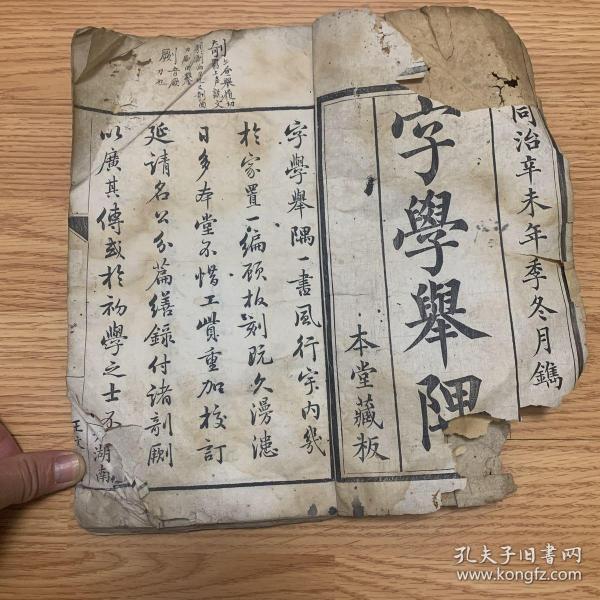 同治辛未年季冬月鐫
字學舉隅
本堂藏板
字學舉隅一書風行宇內幾
於家置一編顧板刻既久漫漶
日多本堂不惜工貲重加校訂
延請名公分篇繕錄付諸剞劂
以廣其傳或於初學之士不
湖南
剞
劂 音厥
孔夫子旧书网
www.kongfz.com